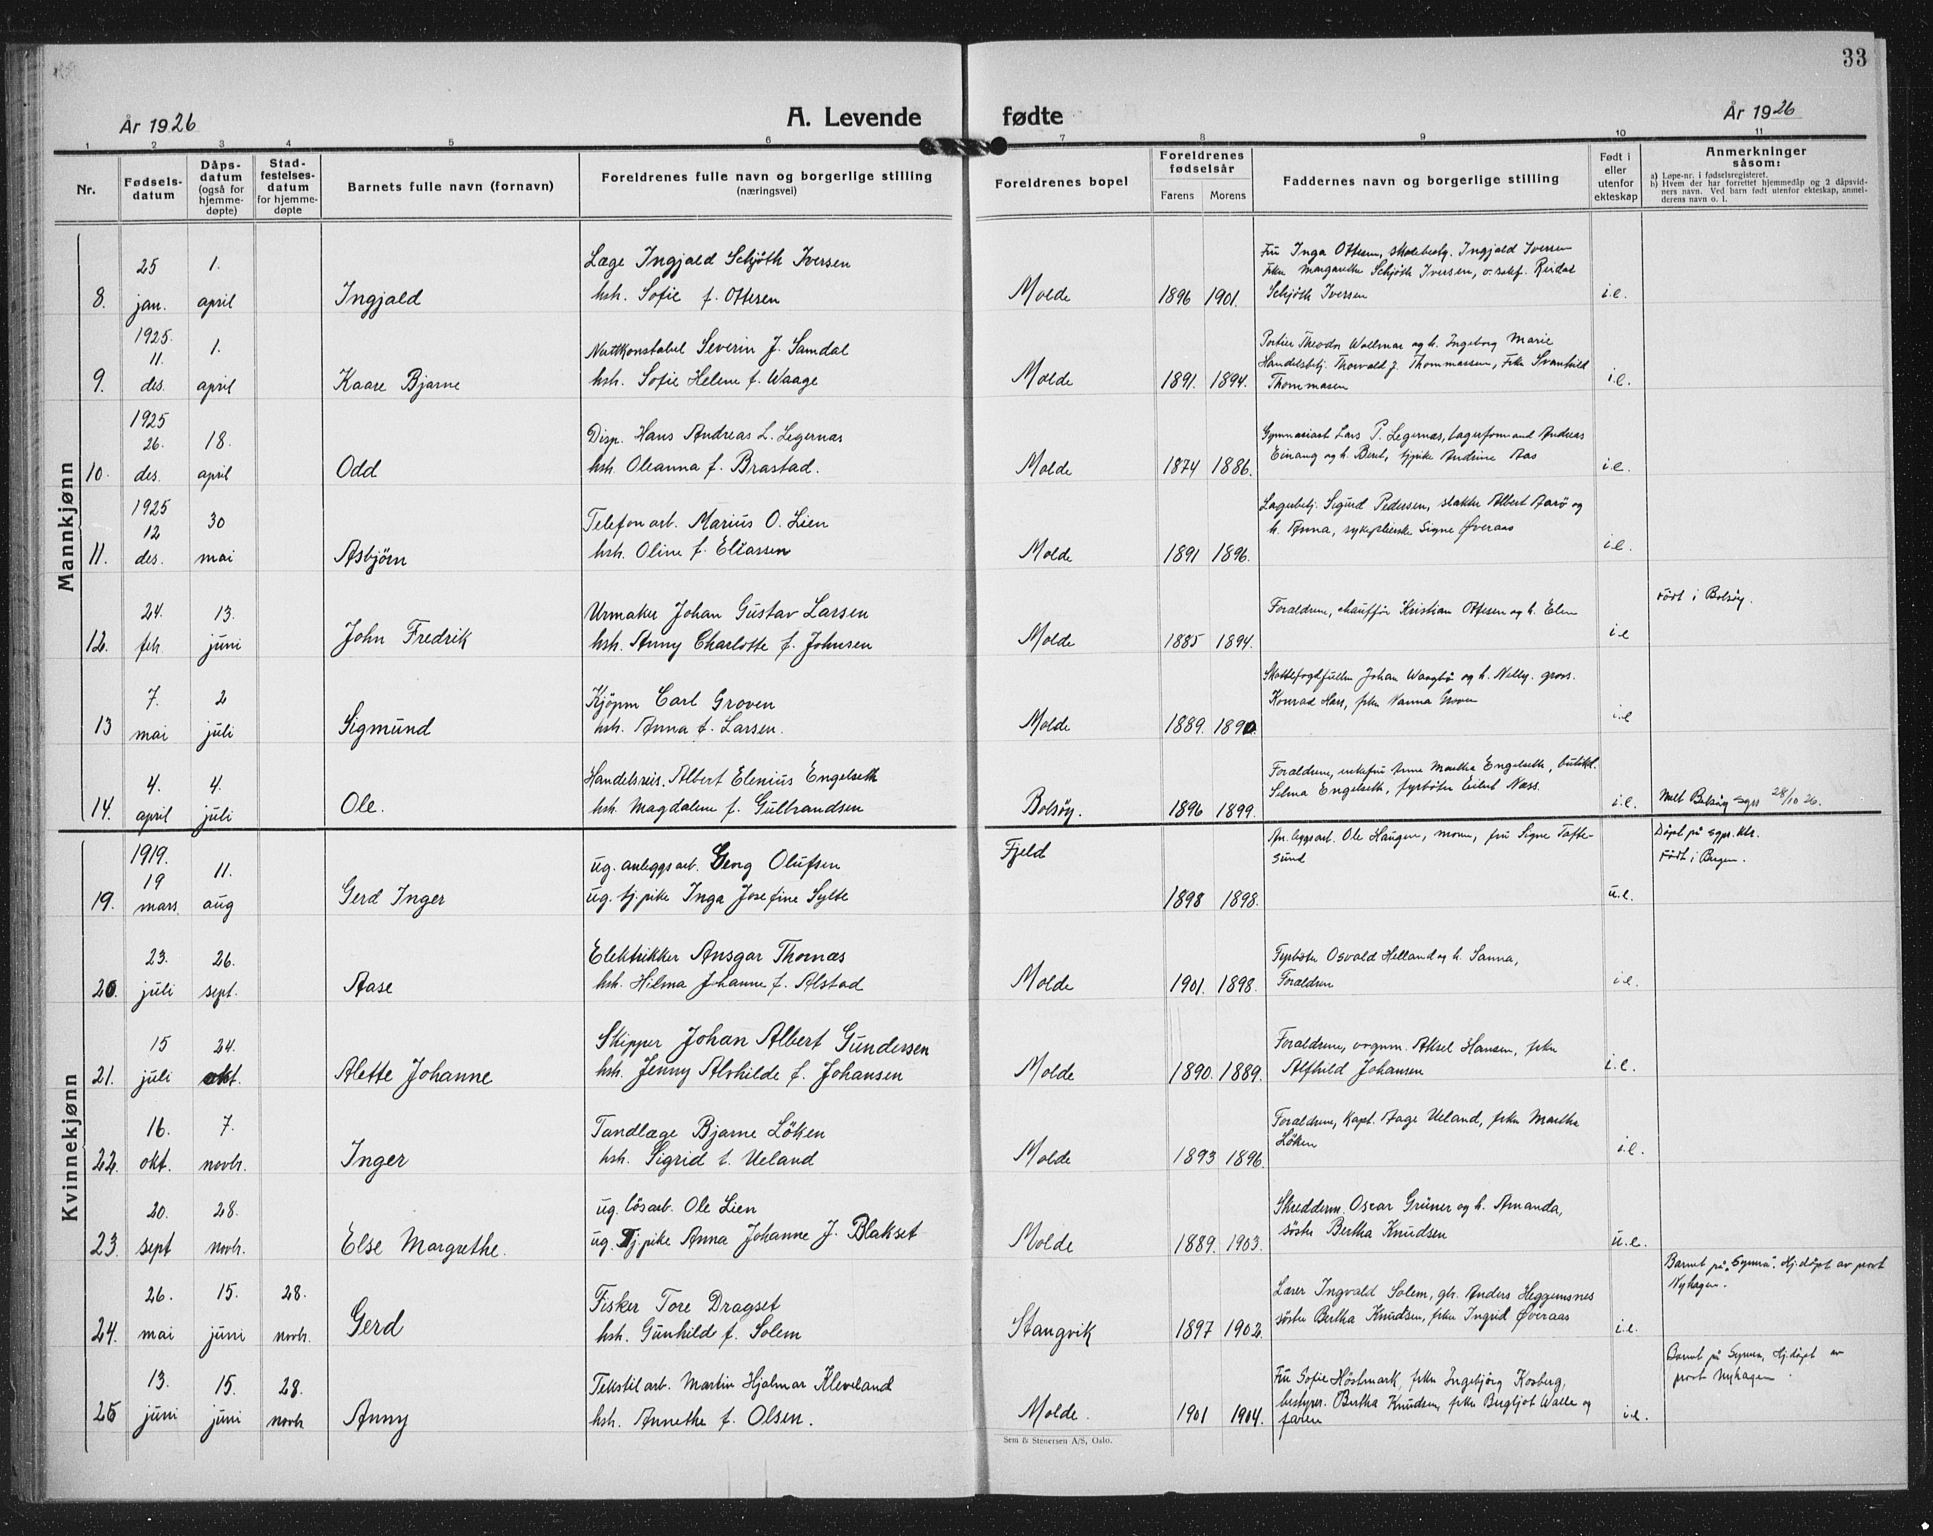 33
År 1926
A. Levende fødte
År 1926
1 2 3 4 5 6 7 8 9 10 11
Nr.
Fødsels-
datum
Dåps-
datum
(også for
hjemme-
døpte)
Stad-
festelses-
datum
for hjemme-
døpte
Barnets fulle navn (fornavn)
Foreldrenes fulle navn og borgerlige stilling
(næringsvei)
Foreldrenes bopel
Foreldrenes
fødselsår
Farens Morens
Faddernes navn og borgerlige stilling
Født i
eller
utenfor
ekteskap
Anmerkninger
såsom:
a) Løpe-nr. i fødselsregisteret.
b) Hvem der har forrettet hjemmedåp og 2 dåpsvid-
ners navn. Ved barn født utenfor ekteskap, anmel-
derens navn o. l.
Mannkjønn
8. 25 jan. 1. april Ingjald
Læge Ingjald Schjøth Iversen
hsh. Sofie f. Ottesen
Molde 1896 1901.
Fru Inga Ottesen, skolebesty. Ingjald Iversen
Frkn Margarethe Schjøth Iversen, o.rettsf. Reidar
Schjøth Iversen
i.e.
9. 1925. 11. des. 1. april Kaare Bjarne
Nattkonstabel Severin J. Samdal
hsh. Sofie Helene f. Waage
Molde 1891. 1894.
Portier Theodor Wollmar og h. Ingeborg Marie
Handelsbetj. Thorvald J. Thommassen, Frkn Svanhild
Thommasen
i.e.
10. 1925 26. des. 18. april Odd
Disp. Hans Andreas L. Legernæs
hsh. Oleanna f. Brastad.
Molde 1874 1886.
Gymnasiast Lars P. Legernæs, lagerformand Andreas
Einang og h. Beret, tjpike Andrine Aas
i.e.
11. 1925 12 des. 30 mai Asbjørn
Telefonarb. Marius O. Lien
hsh. Oline f. Eliassen
Molde 1891 1896.
Lagerbetj. Sigurd Pedersen, slakter Albert Aarø og
h. Anna, sykepleierske Signe Øveraas
i.e.
12. 24. feb. 13. juni John Fredrik
Urmaker Johan Gustav Larsen
hsh. Anny Charlotte f. Johnsen
Molde 1885 1894.
Foreldrene, chauffør Kristian Ottesen og h. Elen
i.e
Født i Bolsøy.
13 7. mai 2 juli Sigmund
Kjøpm Carl Groven
hsh. Anna f. Larsen.
Molde 1889. 1890.
Skattefogdfullm Johan Wangbø og h. Nelly. gross.
Konrad Hass, frkn Nanna Groven
i.e
14. 4. april 4. juli Ole.
Handelsreis. Albert Elenius Engelseth
hsh. Magdalene f. Gulbrandsen
Bolsøy. 1896 1899.
Foreldrene, enkefru Anne Marthea Engelseth, butikd.
Selma Engelseth, fyrbøter Eilert Næss.
i.e.
Melt Bolsøy sgpr 28/10 26.
Kvinnekjønn
19. 1919. 19 mars. 11. aug Gerd Inger
ug. anleggsarb. Georg Olufsen
ug. tj.pike Inga Josefine Sylte
Fjeld 1898 1898.
An.leggsarb. Ole Haugen, moren, fru Signe Tofte-
sund
u.e.
Døpt på sgpr. ktr.
Født i Bergen.
20. 23. juli 26. sept. Aase
Elektrikker Ansgar Thomas
hsh. Hilma Johanne f. Alstad
Molde 1901. 1898.
Fyrbøter Osvald Helland og h. Sanna,
Foreldrene
i.e.
21. 15 juli 24. okt. Alette Johanne
Skipper Johan Albert Gundersen
hsh. Jenny Alvhilde f. Johansen
Molde 1890. 1889.
Foreldrene, vognm. Aksel Hansen, frkn
Alfhild Johansen
i.e.
22. 16. okt. 7. novbr. Inger
Tandlæge Bjarne Löken
hsh. Sigrid f. Ueland
Molde 1893 1896.
Foreldrene, Kapt. Aage Ueland, frkn Marthe
Löken
i.e.
23. 20. sept 28. novbr. Else Margrethe.
ug. løsarb. Ole Lien
ug. Tjpike Anna Johanne J. Blakset
Molde 1889. 1903.
Skredderm. Oscar Grüner og h. Amanda,
søster Bertha Knudsen
u.e.
24. 26. mai 15. juni 28. novbr. Gerd
Fisker Tore Dragset
hsh. Gunhilde f. Solem
Stangvik 1897 1902.
Lærer Ingvald Solem, gb. Anders Heggemsnes
søster Bertha Knudsen, frkn Ingrid Øveraas
i.e.
Barnet på "Symra". Hj.døpt av prost
Nyhagen.
25 13. juni 15. juni 28. novbr Anny
Tekstilarb. Martin Hjalmar Kleveland
hsh. Annethe f. Olsen.
Molde. 1901 1904.
Fru Sofie Høstmark, frkn Ingebjörg Kosberg,
bestyrer. Bertha Knudsen, frkn Bergljot Walle og
faren
i.e.
Barnet på Symra, Hj.døpt av
prost Nyhagen.
Sem & Stenersen A/S, Oslo.